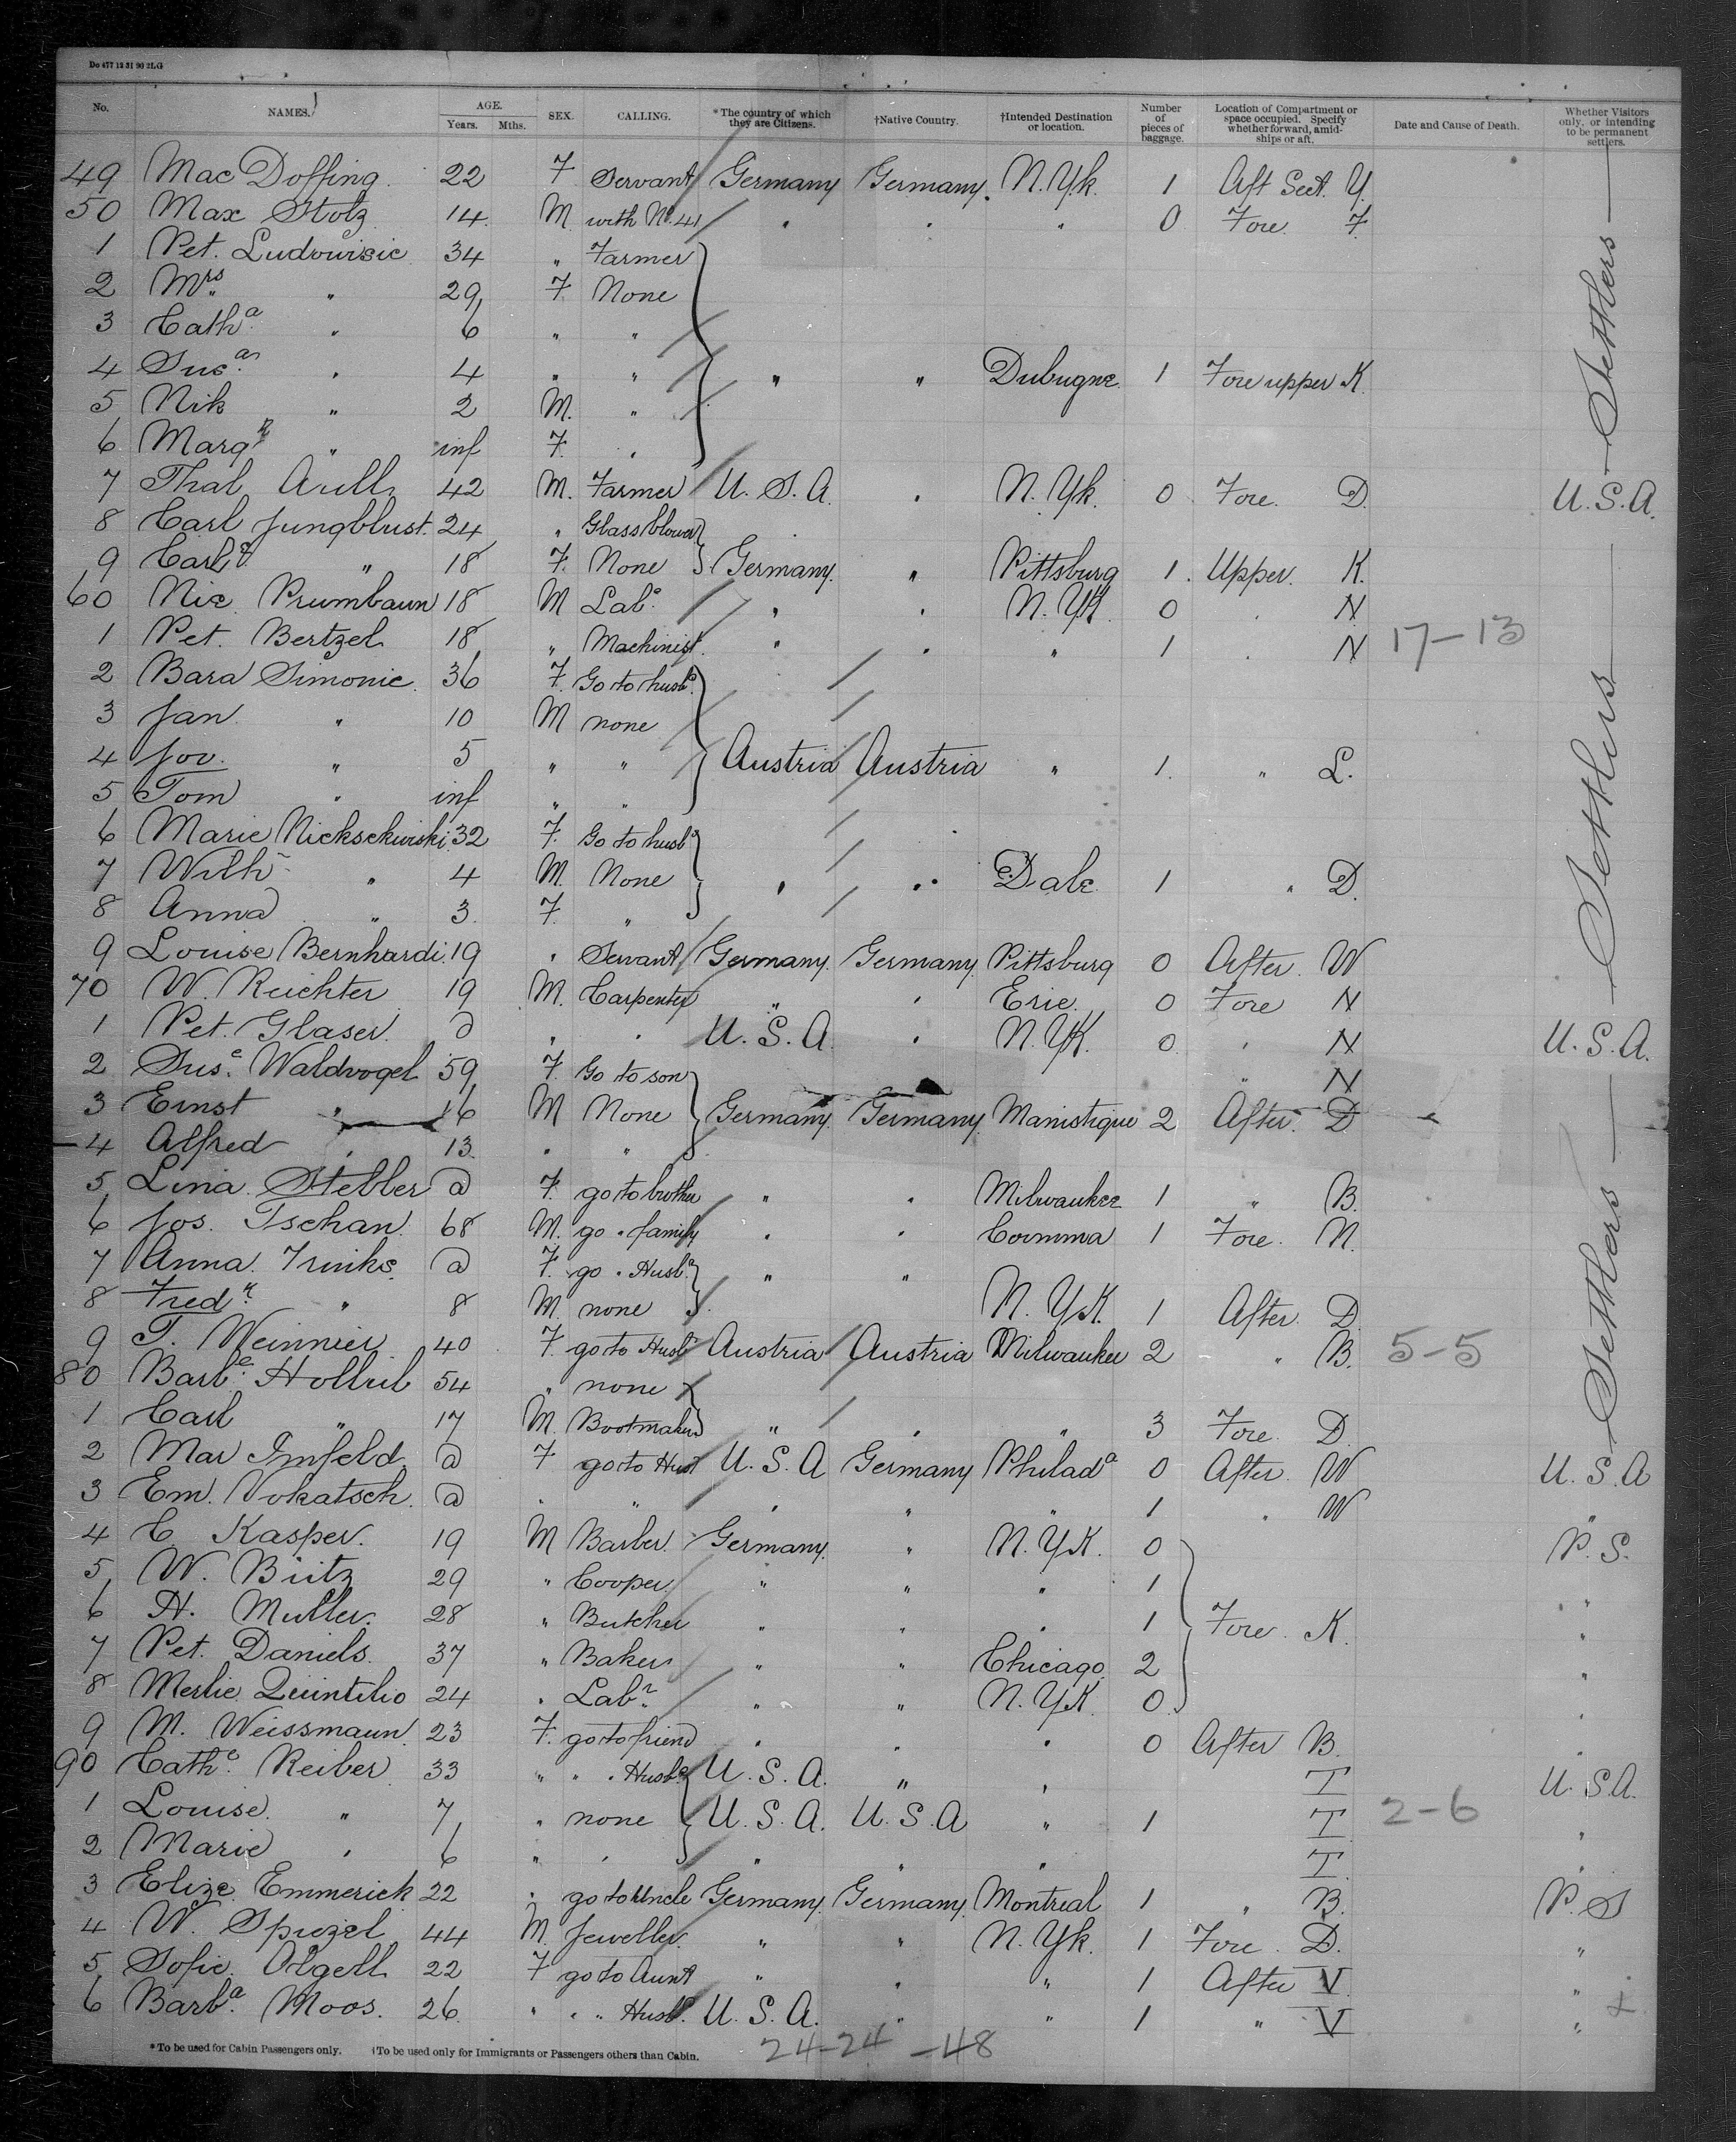 Do 477 12 31 90 2LG
No. NAMES. AGE. Years. Mths. SEX. CALLING. *The country of which they are Citizens. †Native Country. †Intended Destination or location. Number of pieces of baggage. Location of Compartment or space occupied. Specify whether forward, amidships or aft. Date and Cause of Death. Whether Visitors only, or intending to be permanent settlers.
49 Mac Doffing 22 F Servant Germany Germany N. Yk. 1 Aft Sect. Y.
50 Max Stolz 14 M with No. 41 " " " 0 Fore F
1 Pet. Ludowisic 34 " Farmer
2 Mrs " 29 F None
3 Catha " 6 " "
4 Susan " 4 " " " " Dubuque 1 Fore upper K
5 Nik " 2 M. "
6 Margt " inf F. "
7 Thal Arill 42 M. Farmer U. S. A. " N. Yk. 0 Fore D. U. S. A.
8 Carl Jungblust 24 " Glassblower
9 Carla " 18 F. None Germany " Pittsburg 1 Upper K.
60 Nic Prumbaun 18 M Labr " " N. Yk. 0 " N
1 Pet. Bertzel 18 " Machinist " " " 1 " N 17-13
2 Bara Simonic 36 F. Go to husbd
3 Jan " 10 M none
4 Jov. " 5 " " Austria Austria " 1 " L.
5 Tom " inf " "
6 Marie Nickschwiski 32 F. Go to husbd
7 Wilh " 4 M. None " " Dale 1 " D.
8 Anna " 3 F. "
9 Louise Bernhardi 19 " Servant Germany Germany Pittsburg 0 After W
70 W. Reichter 19 M. Carpenter " " Erie 0 Fore N
1 Pet. Glaser a " " U. S. A. " N. Yk. 0 " N U. S. A.
2 Suse Waldvogel 59 F. Go to son " N
3 Ernst " 16 M None Germany Germany Manistique 2 After D
4 Alfred " 13 " "
5 Lina Stebler a F. go to brother " " Milwaukee 1 " B.
6 Jos. Tschan 68 M. go " family " " Corunna 1 Fore N.
7 Anna Trinks a F. go " Husbd " "
8 Fredk " 8 M. none N. Yk. 1 After D
9 T. Weinnier 40 F. go to Husbd Austria Austria Milwaukee 2 " B. 5-5
80 Barbe Hollub 54 " none
1 Carl " 17 M. Bootmaker " " " 3 Fore D
2 Mar Imfeld a F go to Husb U. S. A Germany Philada 0 After W U. S. A
3 Em. Vokatsch a " " " " " 1 " W "
4 C Kasper 19 M Barber Germany " N. Yk. 0 P. S.
5 W. Butz 29 " Cooper " " " 1 "
6 H. Muller 28 " Butcher " " " 1 Fore K. "
7 Pet. Daniels 37 " Baker " " Chicago 2 "
8 Merlie Quintilio 24 " Labr " " N. Yk. 0 "
9 M. Weissmann 23 F. go to friend " " " 0 After B. "
90 Cathe Reiber 33 " " " Husbd U. S. A. " " T U. S. A.
1 Louise " 7 " none U. S. A. U. S. A " 1 T 2-6 "
2 Marie " 6 " " " " " T "
3 Elize Emmerick 22 " go to Uncle Germany Germany Montreal 1 " B. P. S
4 W. Sprozel 44 M. Jeweller " " N. Yk. 1 Fore D. "
5 Sofie Orgell 22 F go to Aunt " " " 1 After V "
6 Barba Moos 26 " " " Husbd. U. S. A. " " 1 " V " +
Settlers
Settlers
Settlers
Settlers
*To be used for Cabin Passengers only. †To be used only for Immigrants or Passengers others than Cabin.
24-24-48